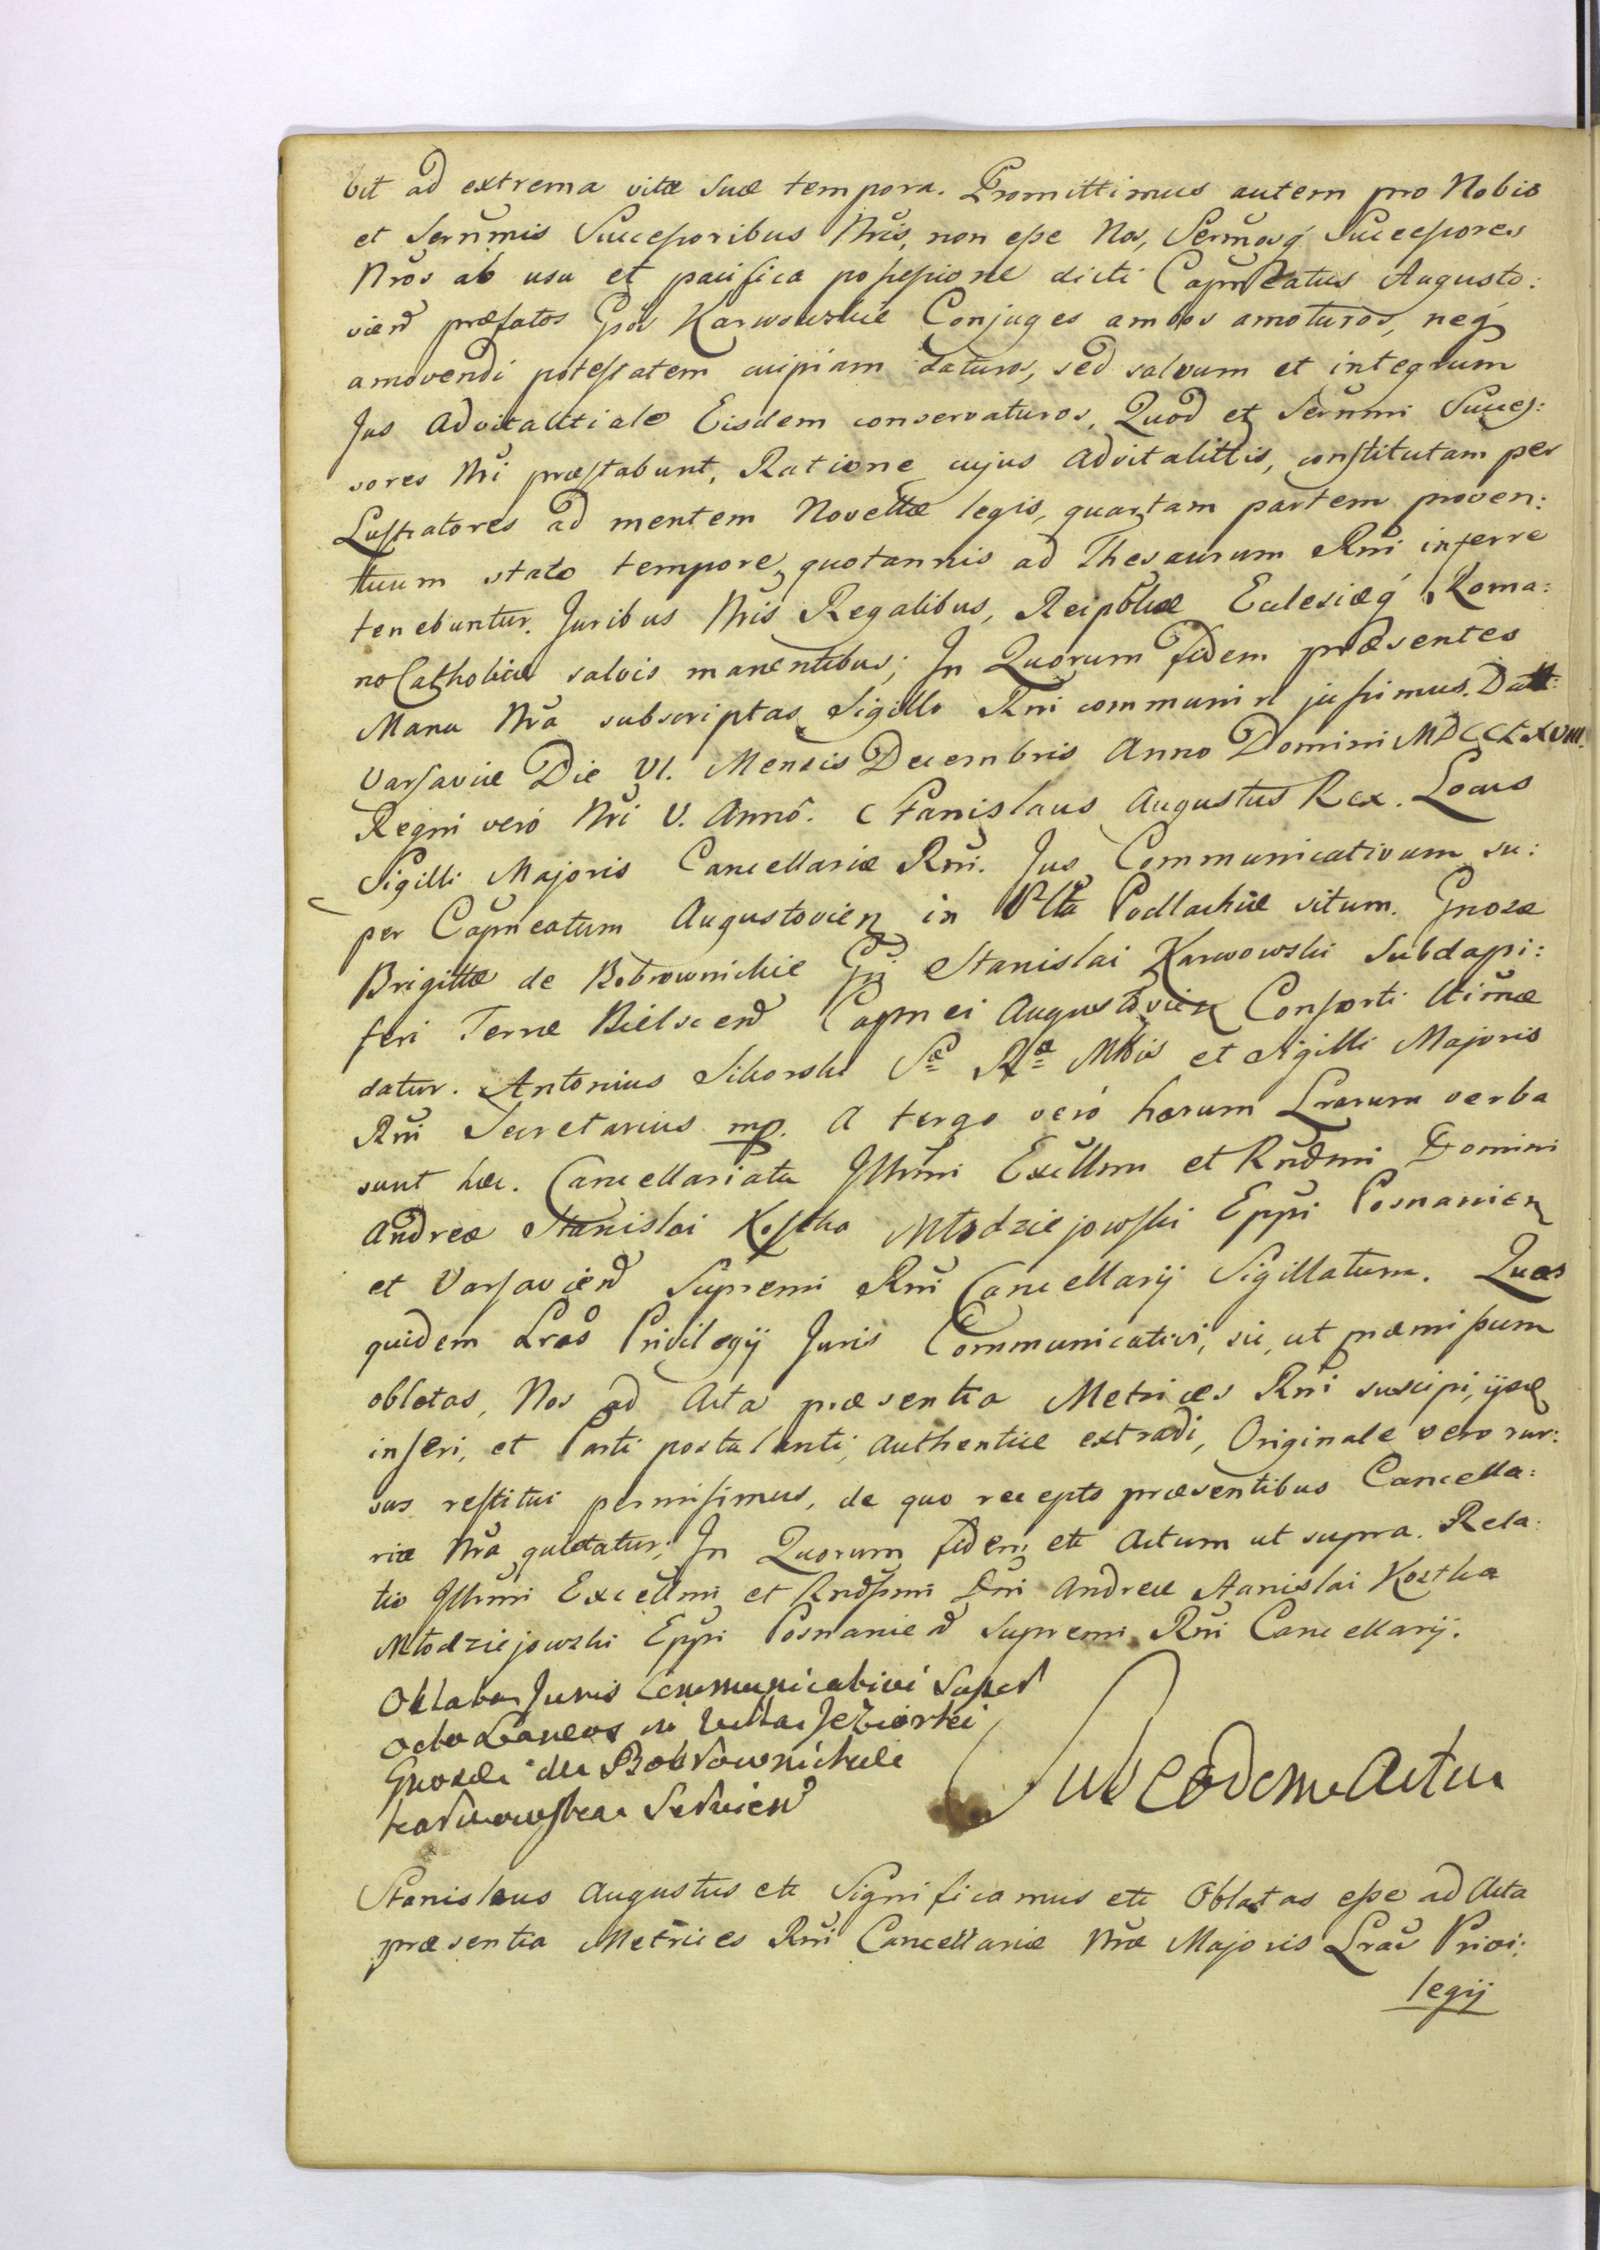 bit ad extrema vitæ suæ tempora. Promittimus autem pro Nobis
et Serñmis Successoribus Nris, non esse Nos, Serñosq́ Successores
Nros ab usu et pacifica possessione dicti Capñeatus Augusto:
vien præfatos Gsos Karwowskie Conjuges ambos amoturos, neq́
amovendi potestatem cuipiam daturos, sed salvum et integrum
Jus Advitalitiale Eisdem conservaturos, Quod et Serñmi Succes:
sores Nri præstabunt, Ratione cujus Advitalittis, constitutam per
Lustratores ad mentem Novellæ legis, quartam partem proven:
tuum stato tempore quotannis ad Thesaurum Rñi inferre
tenebuntur. Juribus Nris Regalibus, Reipblicæ Eclesiæq́ Roma:
no Catholicæ salvis manentibus; In Quorum fidem præsentes
Manu Nra subscriptas Sigillo Rñi communiri jussimus. Datt:
Varsaviæ Die VI. Mensis Decembris Anno Domini MDCCLXVIII.
Regni veró Nri V. Annô. Stanislaus Augustus Rex. Locus
Sigilli Majoris Cancellariæ Rñi. Jus Communicativum su:
per Capñeatum Augustovien in Pltta Podlachiæ situm. Gnosæ
Brigittæ de Bobrownickie Gsi Stanislai Karwowski Subdapi:
feri Terræ Bielscen Capnei Augustovien Consorti Ltimæ
datur. Antonius Sikorski Sæ Ræ Mttis et Sigilli Majoris
Rñi Secretarius mp. A tergo veró harum Lrarum verba
sunt hæc. Cancellariatu Jllñmi Excllmi et Rndmi Domini
Andreæ Stanislai Kostka Młodziejowski Eppi Posnanien
et Varsavien Supremi Rñi Cancellarij Sigillatum. Quas
quidem Lras Privilegij Juris Communicativi, sic, ut præmissum
oblatas, Nos ad Acta præsentia Metrices Rñi suscipi, ijsq
inseri, et Parti postulanti, authentice extradi, Originale vero rur:
sus restitui permisimus, de quo recepto præsentibus Cancella:
ria Nra quietatur; In Quorum fidem etc Actum ut supra. Rela:
tio Jllñmi Excellmi et Rndssmi Dñi Andreæ Stanislai Kostka
Młodziejowski Eppi Posnanien Supremi Rñi Cancellarij.
Oblata Juris Communicativi Super
octo Laneos in Villa Jeziorki
Gnosæ de Bobrownickie
Karwowska Servien
Sub eodem Actu
Stanislaus Augustus etc Significamus etc Oblatas esse ad Acta
præsentia Metrices Rñi Cancellariæ Nræ Majoris Lras Privi:
legij